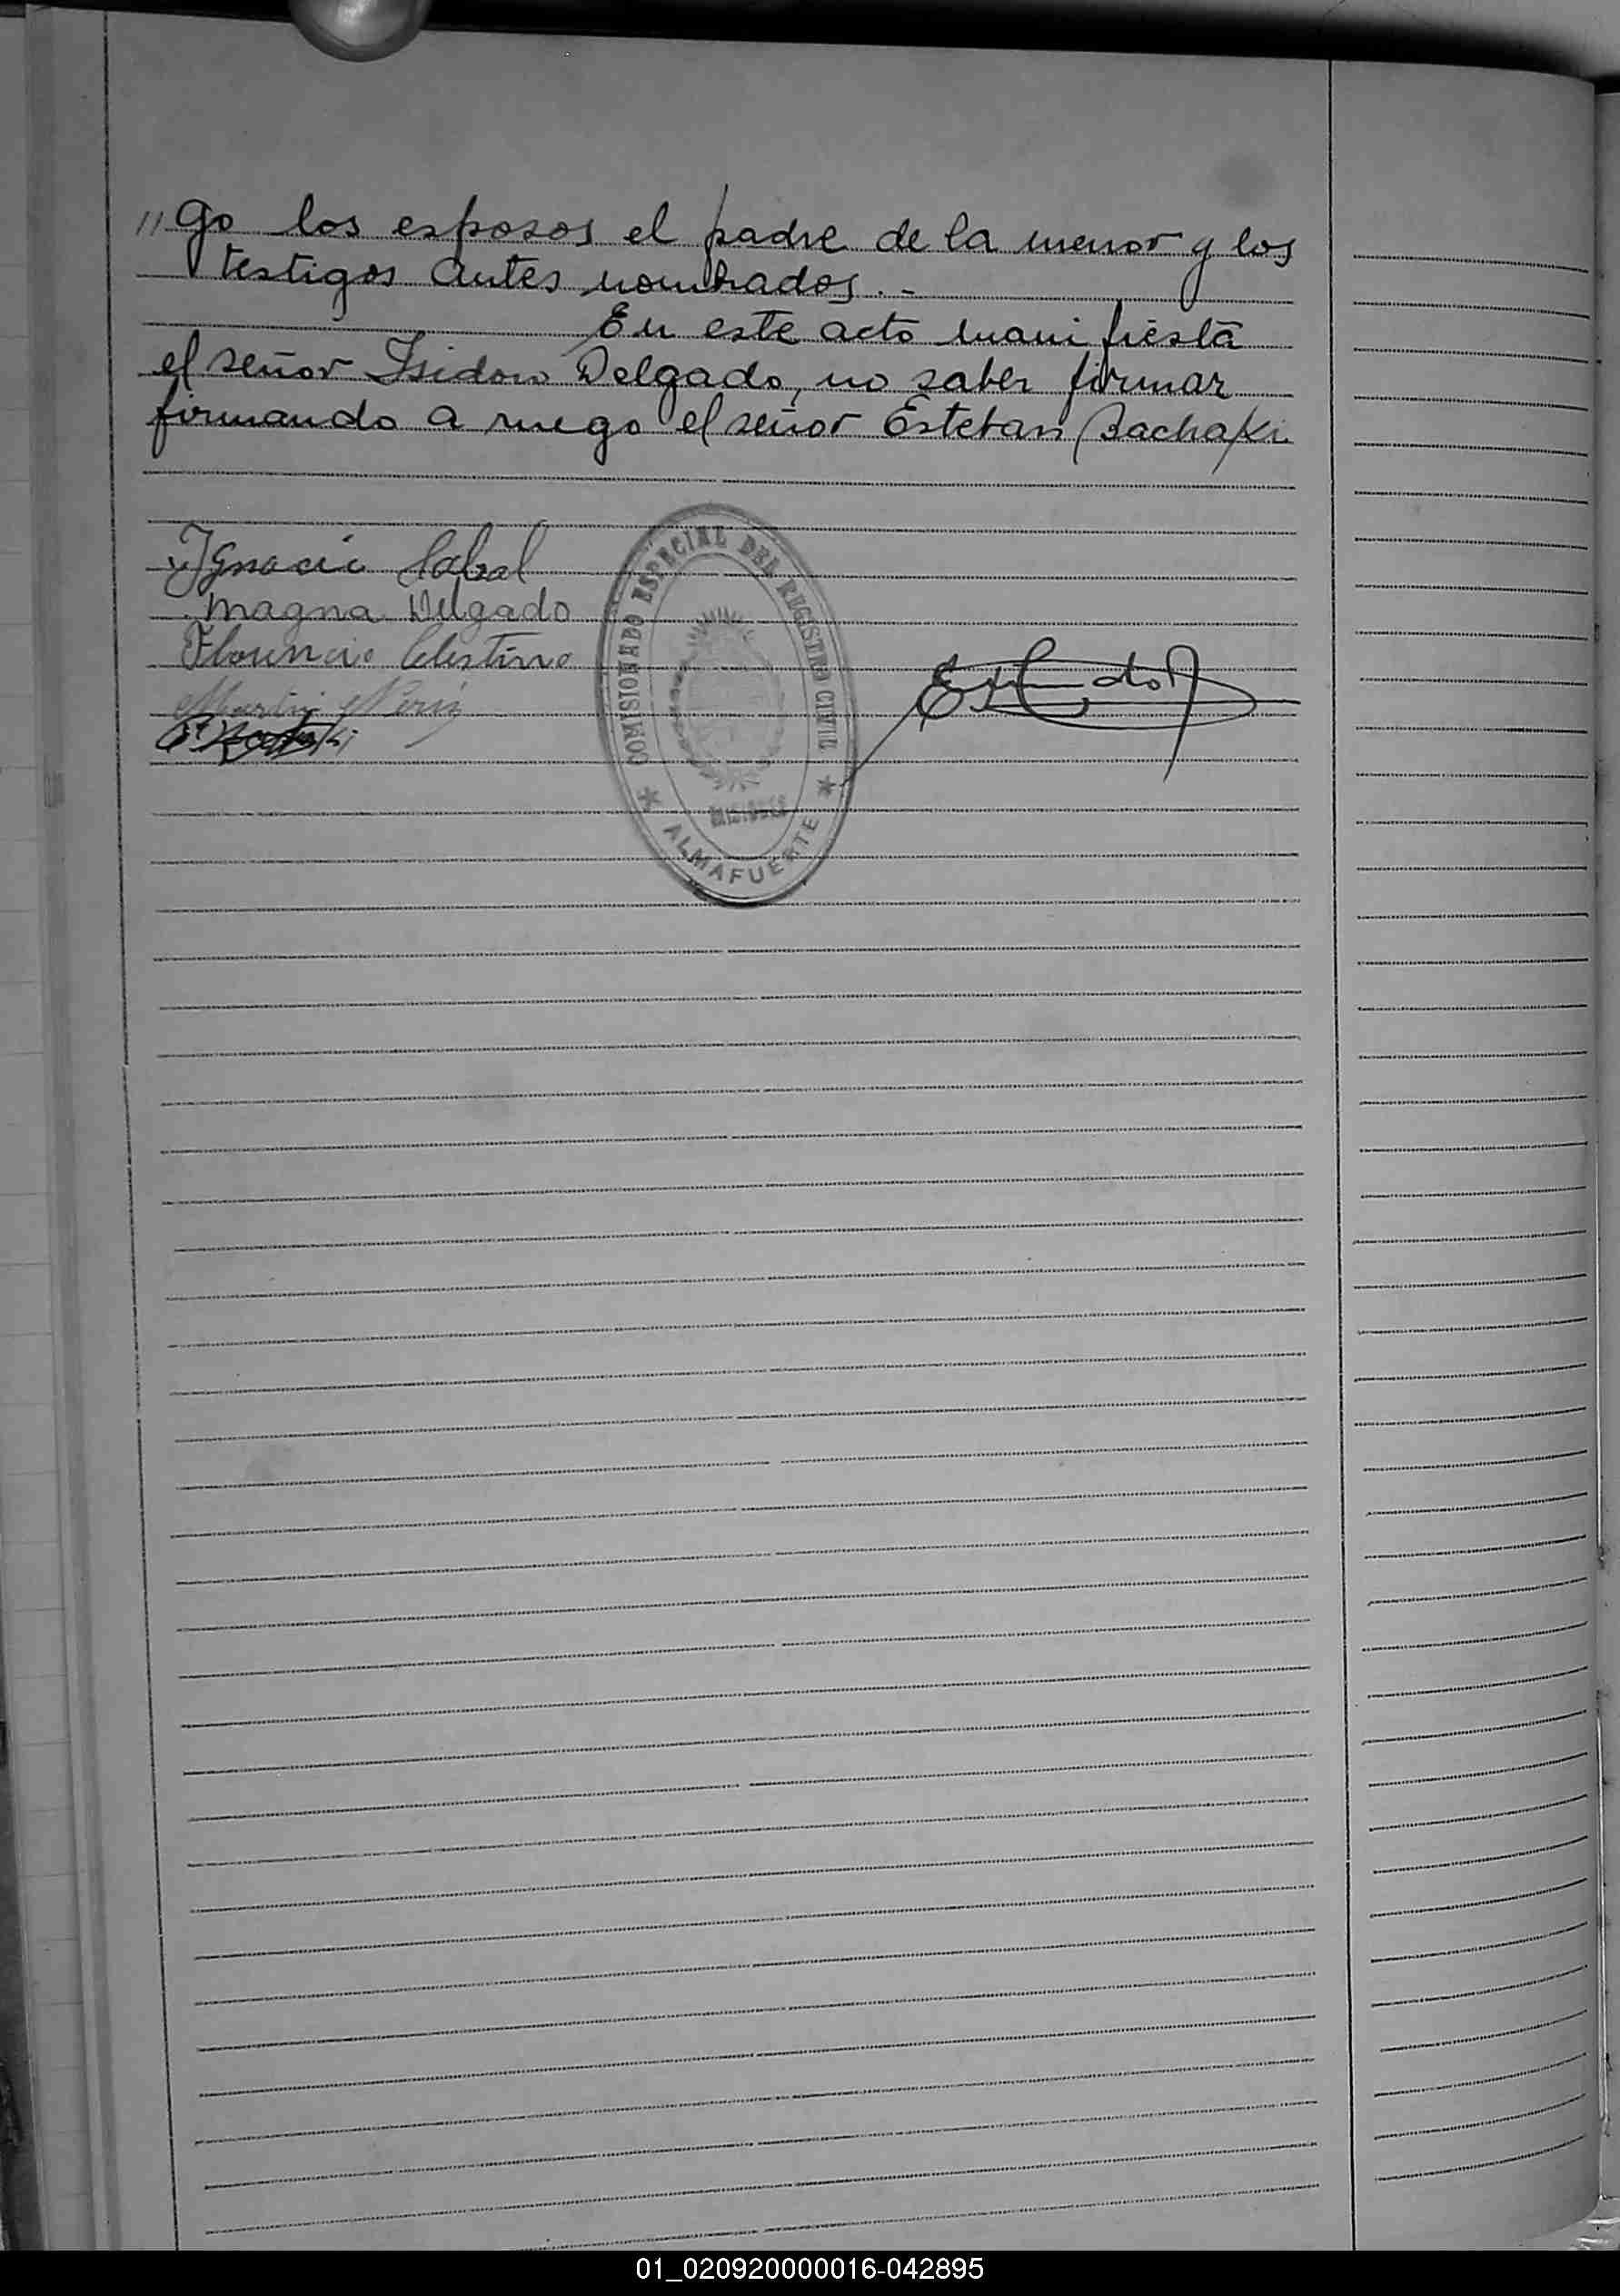 "go los esposos el padre de la menor y los
testigos antes nombrados. -
En este acto manifiesta
el señor Isidoro Delgado, no saber firmar
firmando a ruego el señor Esteban Bachaki
Ignacio Cabral
Magna Delgado
Florencio Celestino
COMISIONADO ESPECIAL DEL REGISTRO CIVIL
MISIONES
★ ALMAFUERTE ★
01_020920000016-042895